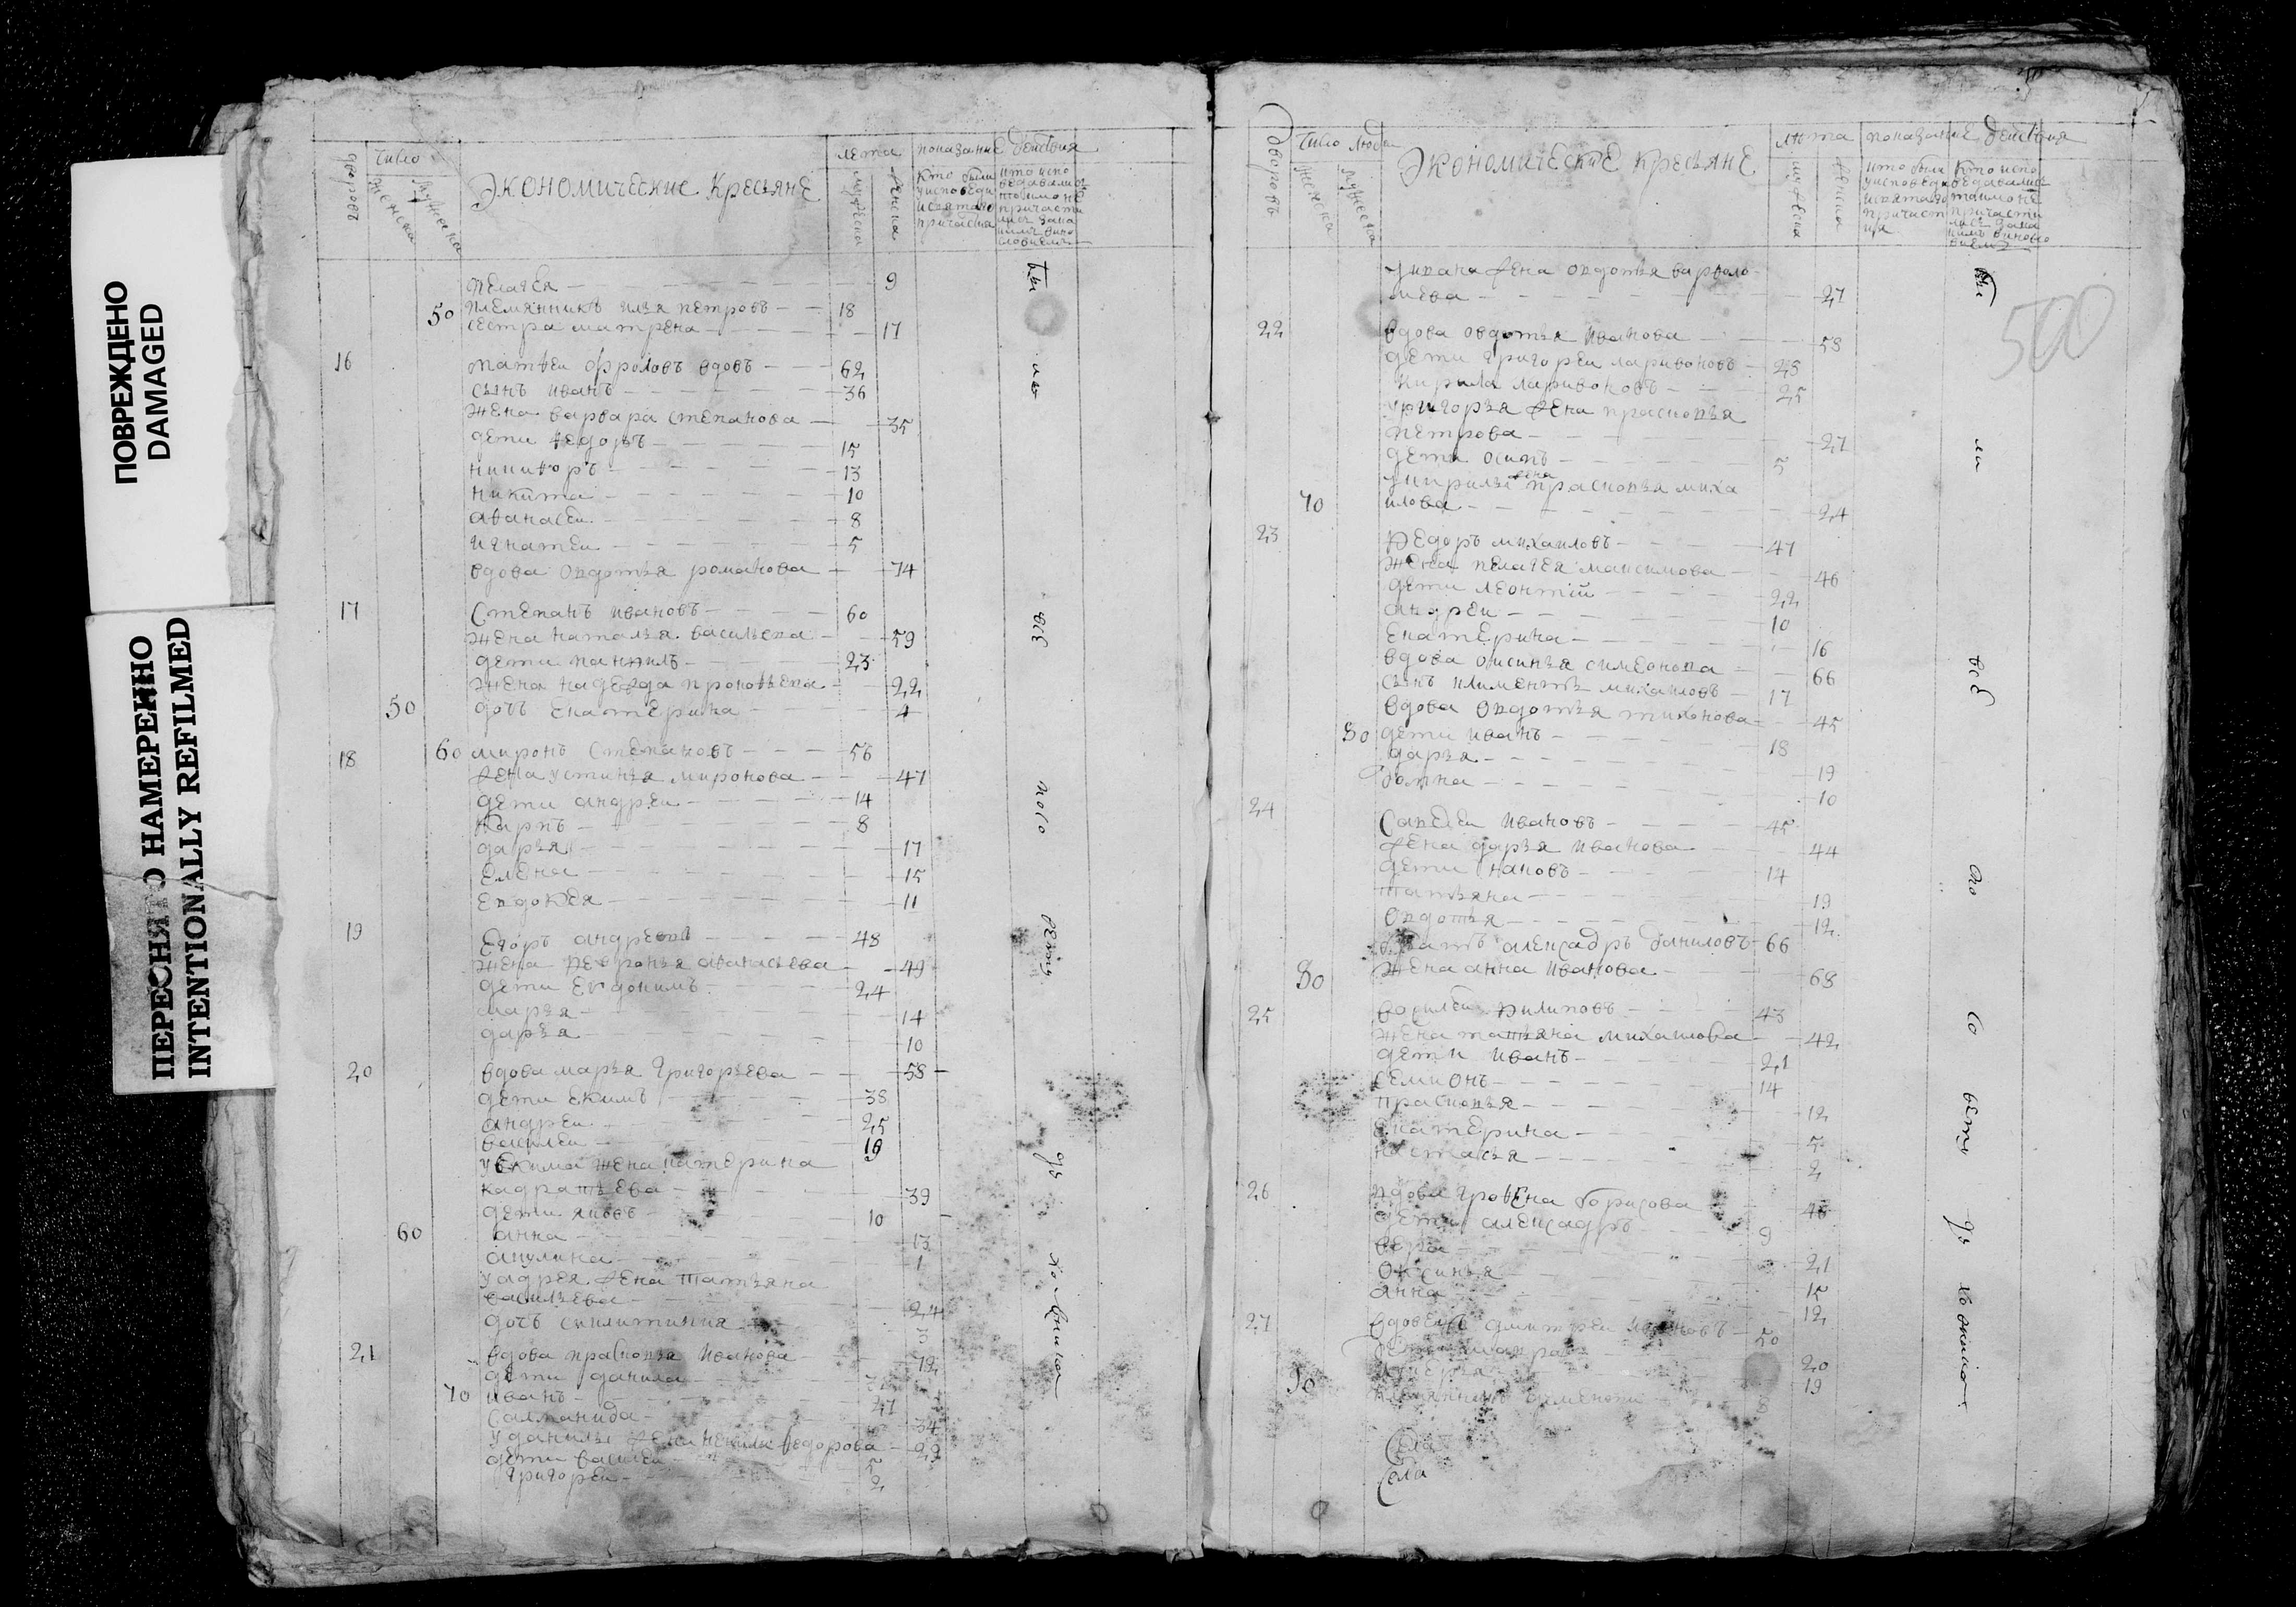 ПОВРЕЖДЕНО
DAMAGED
ПЕРЕСНЯТО НАМЕРЕННО
INTENTIONALLY REFILMED
дворовъ
Число
женска
мужеска
Экономические Крестьяне
лета
мужеска
женска
показание действия
Кто были у исповеди и святаго причастия
кто испо ведавалис токмо не причасти лисъ зака кимъ вино словиемъ
пелагея 9
50 племянникъ илья петровъ 18
сестра матрена 17
16 матфеи фроловъ вдовъ 62
сынъ иванъ 36
жена варвара степанова 35
дети федоръ 15
никифоръ 13
никита 10
афанасеи 8
игнатеи 5
вдова овдотья романова 74
17 Степанъ ивановъ 60
жена наталья васильева 59
дети панфилъ 23
жена надежда прокофьева 22
50 дочь екатерина 4
18 60 миронъ Степановъ 56
жена устинья миронова 47
дети андреи 14
карпъ 8
дарья 17
елена 15
евдокея 11
19 Егоръ андреевъ 48
жена февронья афанасьева 49
дети евдокимъ 24
марья 14
дарья 10
20 вдова марья григорьева 58
дети екимъ 38
андреи 25
василеи 19
у екима жена катерина
кадратьева 39
дети яковъ 10
60 анна 13
акулина 1
у адрея жена татьяна
васильева 24
дочь скилитикия 3
21 вдова прасковья иванова 72
дети данила
70 иванъ 27
Саломанида 34
у данилы жена федорова 22
дети василеи 5
григореи 2
ты
ли
зав
того
вету
дъ
хо
вника
дворовъ
Число людеи
женска
мужеска
Экономическиe Крестьяне
лета
мужеска
женска
показание действия
кто были у исповеди и святаго причаст ия
Кто испо ведавалис токмо не причасти лисъ зака кимъ виносло виемъ
500
у ивана жена овдотья варфоло
меева 27
22 вдова овдотья иванова 58
дети григореи ларивоновъ 28
кирила ларивоновъ 25
у григорья жена прасковья
петрова 27
дети осипъ 5
у кирилы жена прасковья миха
70 илова 24
23 Федоръ михаиловъ 47
жена пелагея максимова 46
дети леонтій 22
андреи 10
екатерина 16
вдова оксинья симеонова 66
сынъ климентъ михаиловъ 17
вдова овдотья тихонова 45
80 дети иванъ 18
дарья 19
домна 10
24 Савелеи ивановъ 45
жена дарья иванова 44
дети яковъ 14
татьяна 19
овдотья 12
братъ алексадръ даниловъ 66
80 жена анна иванова 68
25 василеи филиповъ 43
жена татьяна михаилова 42
дети иванъ 21
семионъ 14
прасковья 12
екатерина 5
настасья 2
26 вдова графена борисова 46
дети алексадръ 9
вера 21
оксинья 15
анна 12
27 вдовецъ дмитреи ивановъ 50
дети мавра 20
90 19
племянникъ 8
Села
Села
ты
ли
зав
то
го
вету
дъ
хо
вника